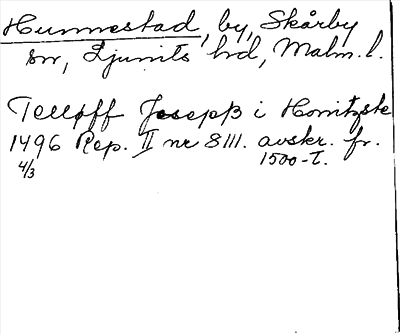 Hunnestad, by, Skårby
sn, Ljunits hd, Malm. l.
Telløff Josepß i Honitzste
1496 Rep. II nr 8111. avskr. fr.
4/3 1500-t.